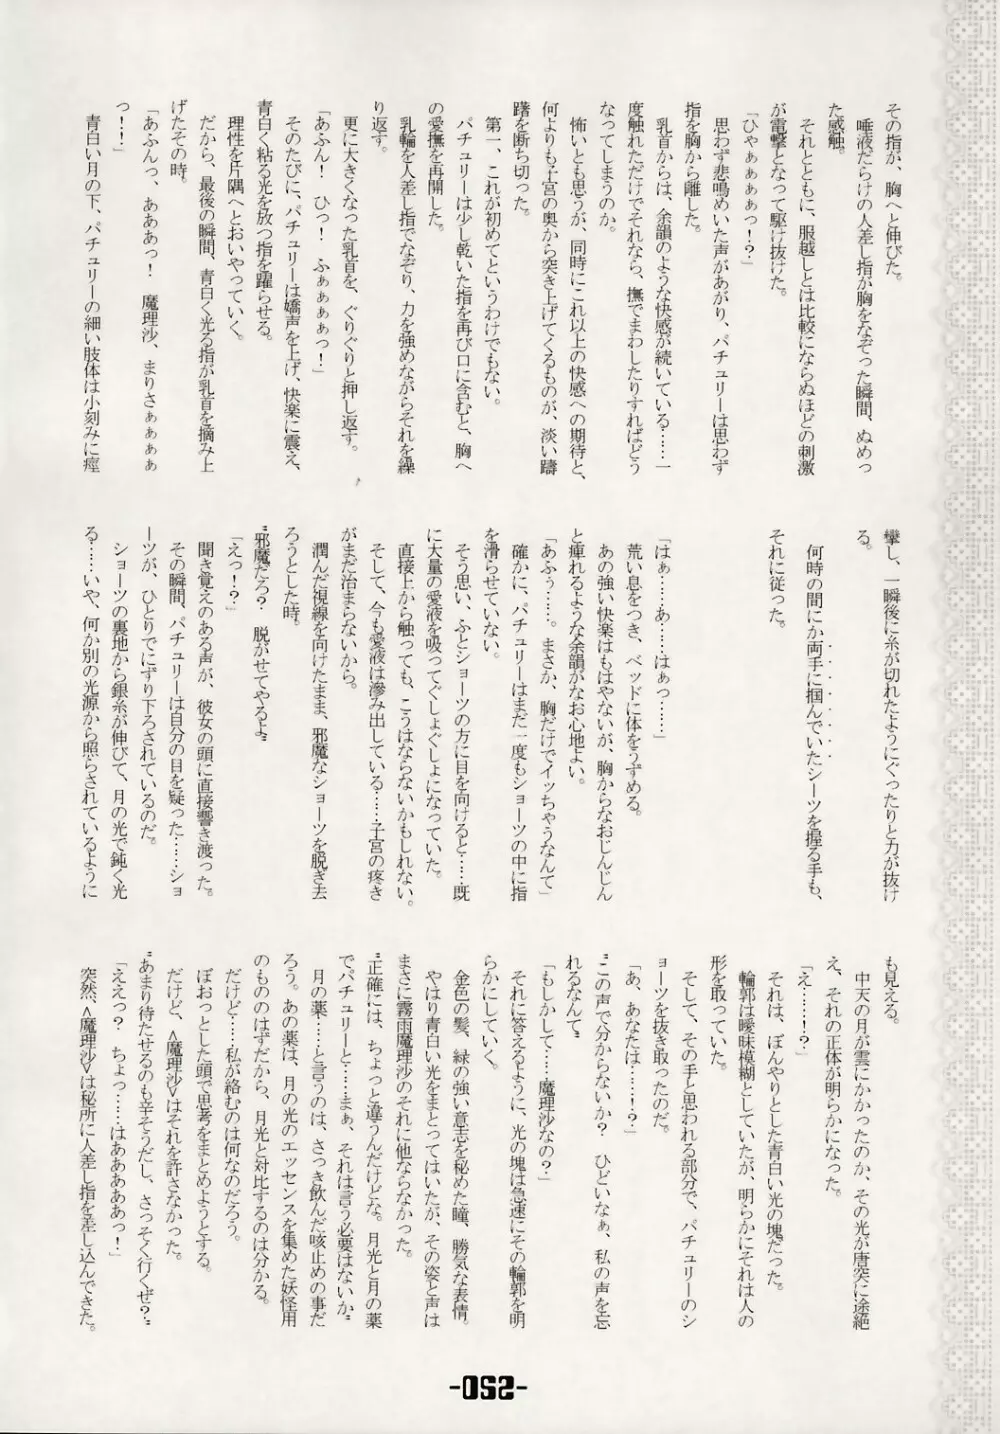 その指が、胸へと伸びた。
唾液だらけの人差し指が胸をなぞった瞬間、ぬめっ
た感触。
それとともに、服越しとは比較にならぬほどの刺激
が電撃となって駆け抜けた。
「ひゃぁぁぁぁっ！？」
思わず悲鳴めいた声があがり、パチュリーは思わず
指を胸から離した。
乳首からは、余韻のような快感が続いている……一
度触れただけでそれなら、撫でまわしたりすればどう
なってしまうのか。
怖いとも思うが、同時にこれ以上の快感への期待と、
何よりも子宮の奥から突き上げてくるものが、淡い躊
躇を断ち切った。
第一、これが初めてというわけでもない。
パチュリーは少し乾いた指を再び口に含むと、胸へ
の愛撫を再開した。
乳輪を人差し指でなぞり、力を強めながらそれを繰
り返す。
更に大きくなった乳首を、ぐりぐりと押し返す。
「あふん！　ひっ！　ふぁぁぁぁっ！」
そのたびに、パチュリーは嬌声を上げ、快楽に震え、
青白く粘る光を放つ指を躍らせる。
理性を片隅へとおいやっていく。
だから、最後の瞬間、青白く光る指が乳首を摘み上
げたその時。
「あふんっ、あああっ！　魔理沙、まりさぁぁぁぁ
っ！…！」
青白い月の下、パチュリーの細い肢体は小刻みに痙
攣し、一瞬後に糸が切れたようにぐったりと力が抜け
る。
何時の間にか両手に掴んでいたシーツを握る手も、
それに従った。
「はぁ……あ……はぁっ……」
荒い息をつき、ベッドに体をうずめる。
あの強い快楽はもはやないが、胸からなおじんじん
と痺れるような余韻がなお心地よい。
「あふぅ……。まさか、胸だけでイッちゃうなんて」
確かに、パチュリーはまだ一度もショーツの中に指
を滑らせていない。
そう思い、ふとショーツの方に目を向けると……既
に大量の愛液を吸ってぐしょぐしょになっていた。
直接上から触っても、こうはならないかもしれない。
そして、今も愛液は滲み出している……子宮の疼き
がまだ治まらないから。
潤んだ視線を向けたまま、邪魔なショーツを脱ぎ去
ろうとした時。
“邪魔だろ？　脱がせてやるよ”
「えっ！？」
聞き覚えのある声が、彼女の頭に直接響き渡った。
その瞬間、パチュリーは自分の目を疑った……ショ
ーツが、ひとりでにずり下ろされているのだ。
ショーツの裏地から銀糸が伸びて、月の光で鈍く光
る……いや、何か別の光源から照らされているように
も見える。
中天の月が雲にかかったのか、その光が唐突に途絶
え、それの正体が明らかになった。
「え…！？」
それは、ぼんやりとした青白い光の塊だった。
輪郭は曖昧模糊としていたが、明らかにそれは人の
形を取っていた。
そして、その手と思われる部分で、パチュリーのシ
ョーツを抜き取ったのだ。
「あ、あなたは……！？」
“この声で分からないか？　ひどいなぁ、私の声を忘
れるなんて”
「もしかして……魔理沙なの？」
それに答えるように、光の塊は急速にその輪郭を明
らかにしていく。
金色の髪、緑の強い意志を秘めた瞳、勝気な表情。
やはり青白い光をまとってはいたが、その姿と声は
まさに霧雨魔理沙のそれに他ならなかった。
“正確には、ちょっと違うんだけどな。月光と月の薬
でパチュリーと……まぁ、それは言う必要はないか”
月の薬……と言うのは、さっき飲んだ咳止めの事だ
ろう。あの薬は、月の光のエッセンスを集めた妖怪用
のもののはずだから、月光と対比するのは分かる。
だけど……私が絡むのは何なのだろう。
ぼおっとした頭で思考をまとめようとする。
だけど、<魔理沙>はそれを許さなかった。
“あまり待たせるのも辛そうだし、さっそく行くぜ？”
「ええっ？　ちょっ……はああああっ！」
突然、<魔理沙>は秘所に人差し指を差し込んできた。
-052-